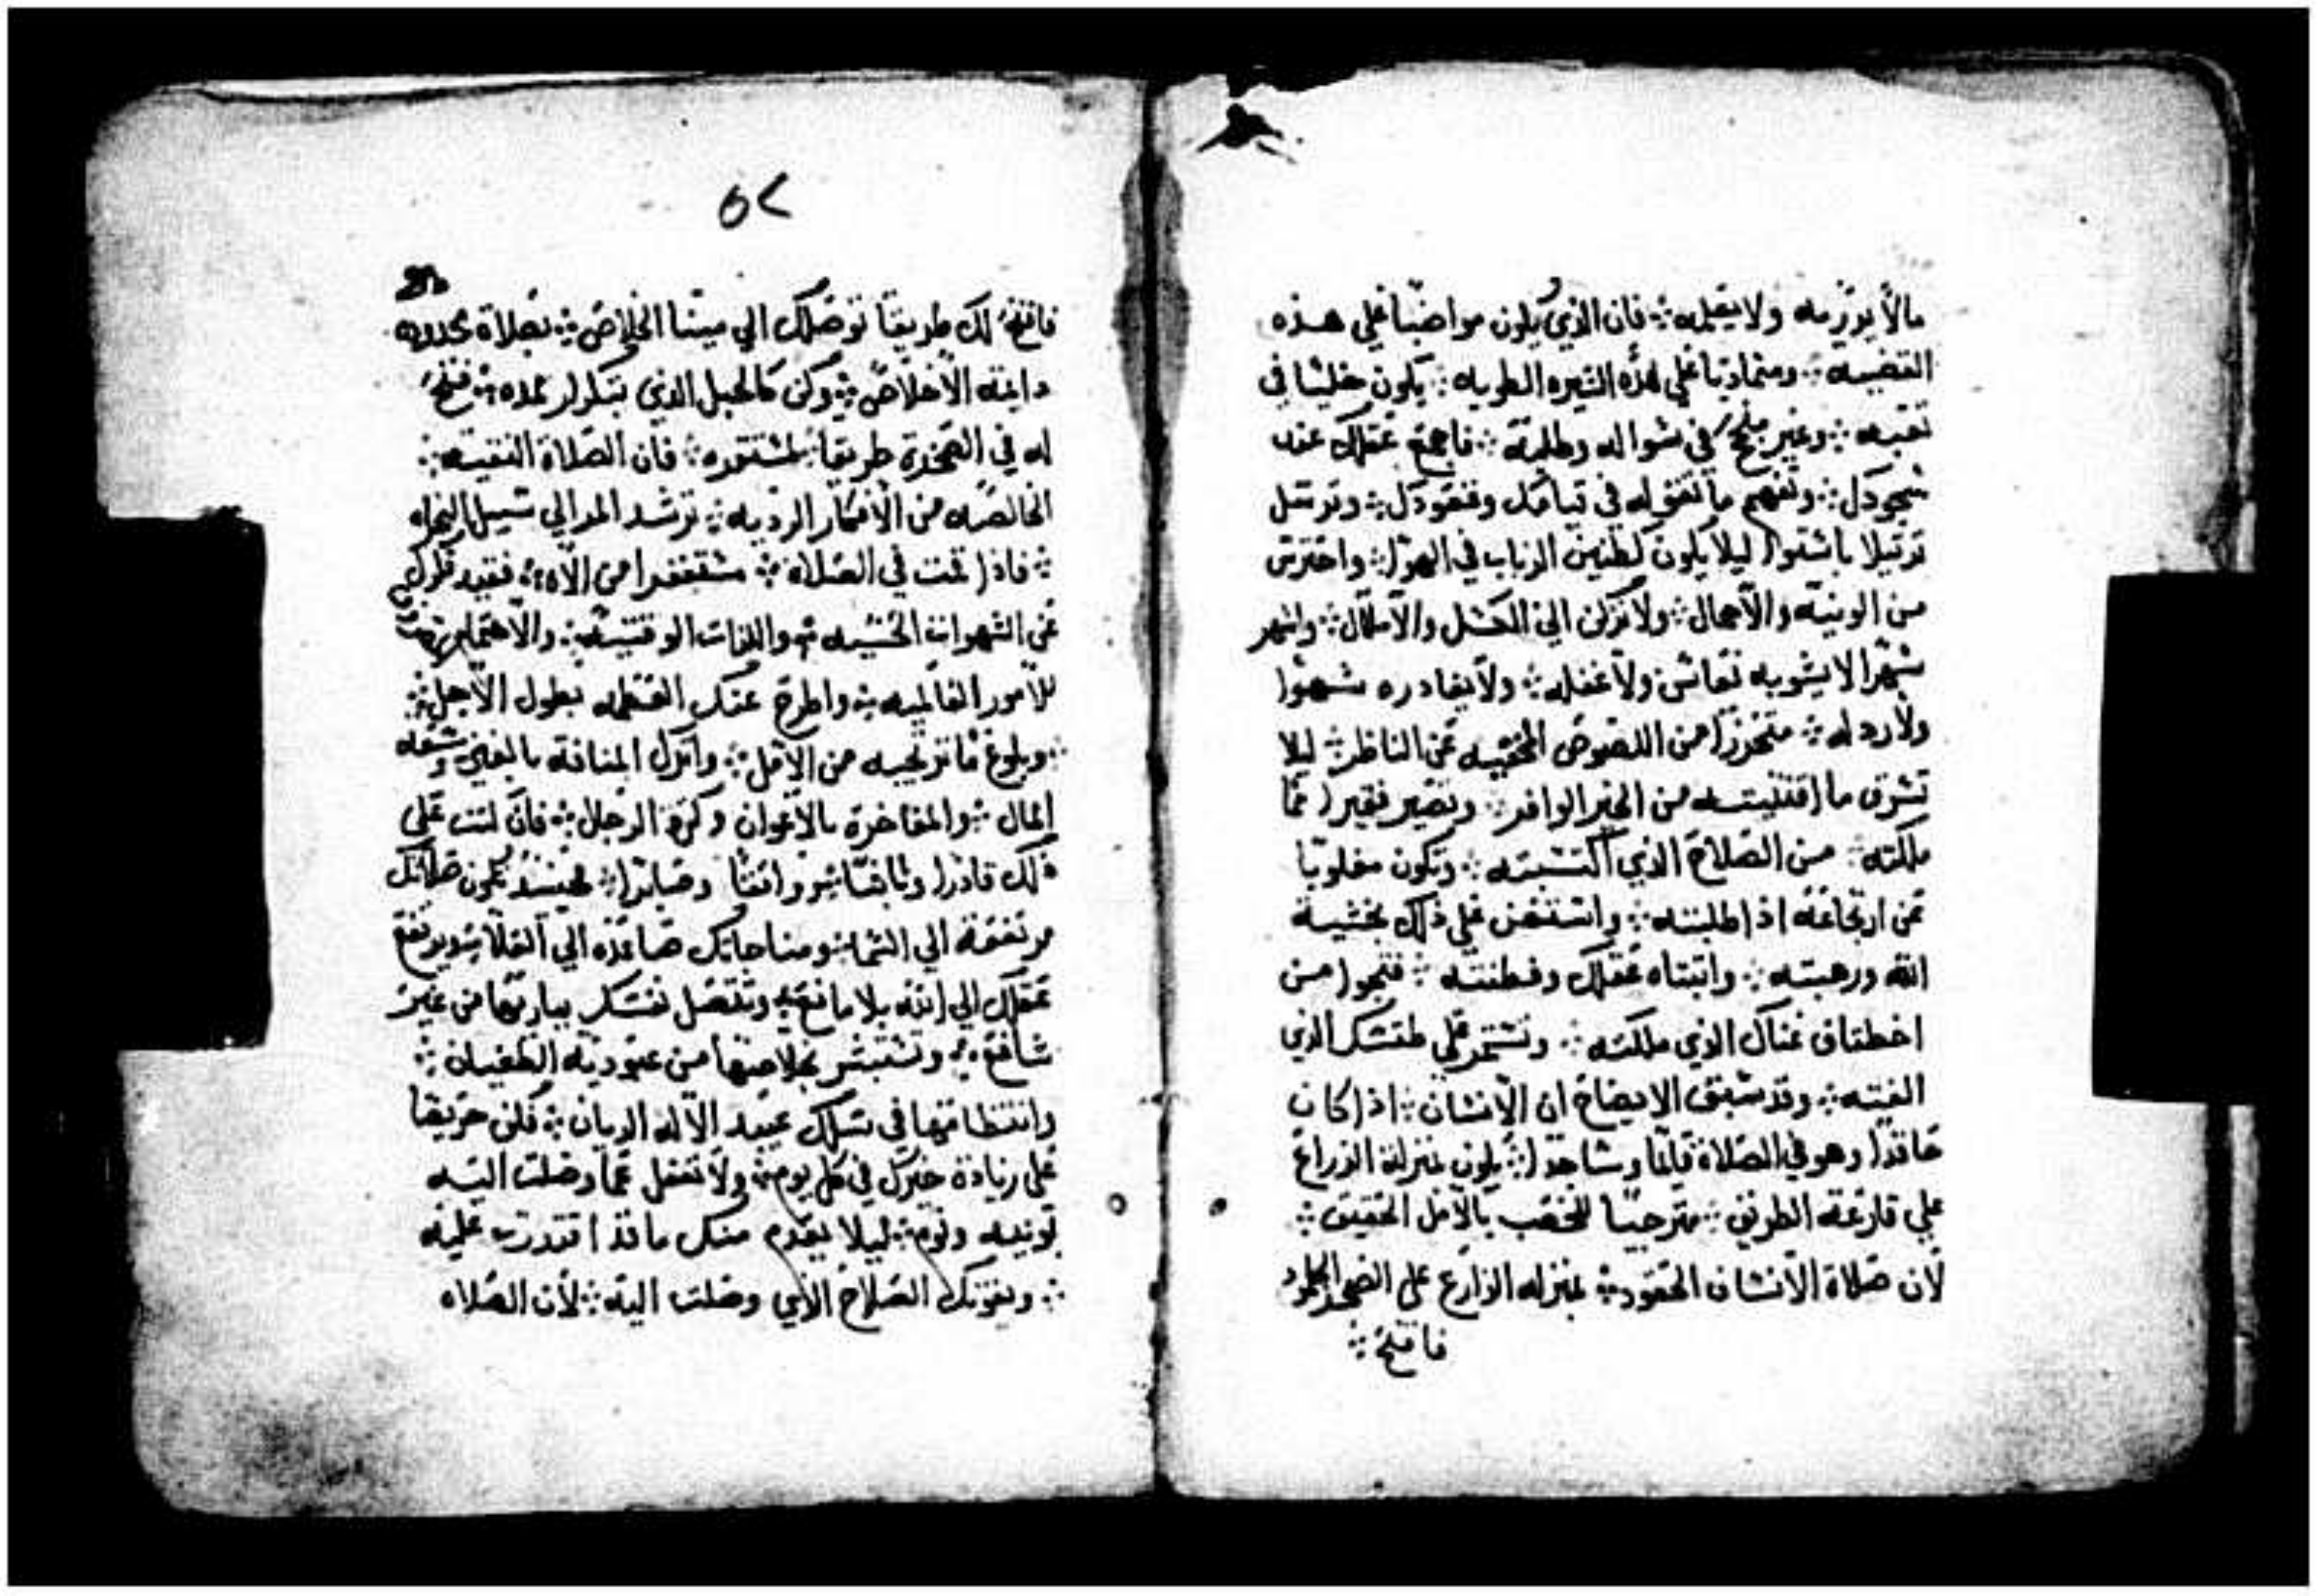 مالا يورزمه ولا يقيمه ܀ فان الذي يكون مواضبا علي هذه
القضيه ܀ ومتماديا علي هذه السيره الطويه ܀ يكون خليثا في
تعبه ܀ وغير ملح في سواله وطلبته ܀ فاجمع عقلك عند
سجودك ܀ وتفهم ما تقوله في قيامك وقعودك ܀ وترتل
ترتيلا باستوا ليلا يكون كطنين الدباب في الهوا ܀ واحترس
من الونيه والاهمال ܀ ولا تركن الي الكسل والاملال ܀ واسهر
سهرا لا يشوبه نعاس ولا غفله ܀ ولا يغادره سهوا
ولا رد له ܀ متحرزا من اللصوص المخفيه عن الناظر ܀ ليلا
تسرق ما اقتنيته من الخير الوافر ܀ وتصير فقيرا مما
ملكته ܀ من الصلاح الذي اكتسبته ܀ وتكون مغلوبا
عن ارتجاعه اذا طلبته ܀ واستعن علي ذلك بخشية
الله ورهبته ܀ وانتباه عقلك وفطنته ܀ فتنجوا من
اختطاف غناك الذي ملكته ܀ وتستمر علي طقسك الذي
الفيته ܀ وقد سبق الايضاح ان الانسان ܀ اذا كان
حاقدا وهو في الصلاة قايما وساجدا ܀ يكون بمنزلة الزراع
علي قارعة الطريق ܀ مترجيا للخصب بالامل الحقيق ܀
لان صلاة الانسان الحقود ܀ بمنزله الزارع علي الصخر الجلمود
فافتح ܀
٥٢
فافتح لك طريقا توصلك الي مينا الخلاص ܀ بصلاة محدوده
دايمة الاخلاص ܀ وكن كالحبل الذي يتكرار مده ܀ فتح
له في الصخرة طريقا مستمره ܀ فان الصلاة النقيه ܀
الخالصه من الافكار الرديه ܀ ترشد المرا الي سبيل النجاه
܀ فاذا قمت في الصلاة ܀ مستغفرا من الاه ܀ فقيد فكرك
عن الشهوات الحسيه ܀ واللذات الوقتيه ܀ والاهتمام
للامور العالميه ܀ واطرح عنك الغفله بطول الاجل ܀
܀ وبلوغ ما ترتجيه من الامل ܀ واترك المنافة بالغني وسعة
المال ܀ والمفاخرة بالاعوان وكثرة الرجال ܀ فان كنت علي
ذلك قادرا وواثقا وصابرا ܀ فحينيذ تكون صلاتك
مرتفعة الي السما ܀ ومناجاتك صاعده الي العلا ܀ ويرتفع
عقلك الي الله بلا مانع ܀ وتتصل نفسك بباريها من غير
شافع ܀ وتستبشر بخلاصها من عبودية الطغيان ܀
وانتظامها في سلك عبيد الاله الديان ܀ فكن حريصا
علي زيادة خيرك في كل يوم ܀ ولا تغفل عما وصلت اليه
بونيه ونوم ܀ ليلا يعدم منك ما قد اقتدرت عليه
܀ ويفوتك الصلاح الذي وصلت اليه ܀ لان الصلاه